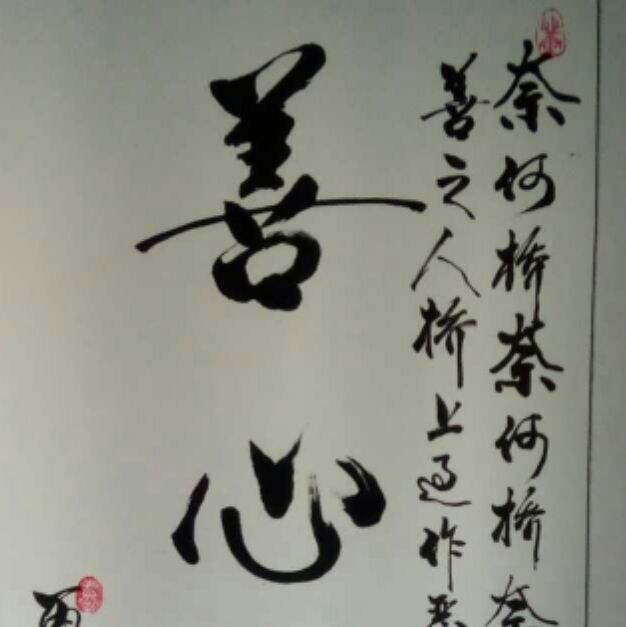 奈何桥奈何桥奈
善之人桥上过作恶
善心